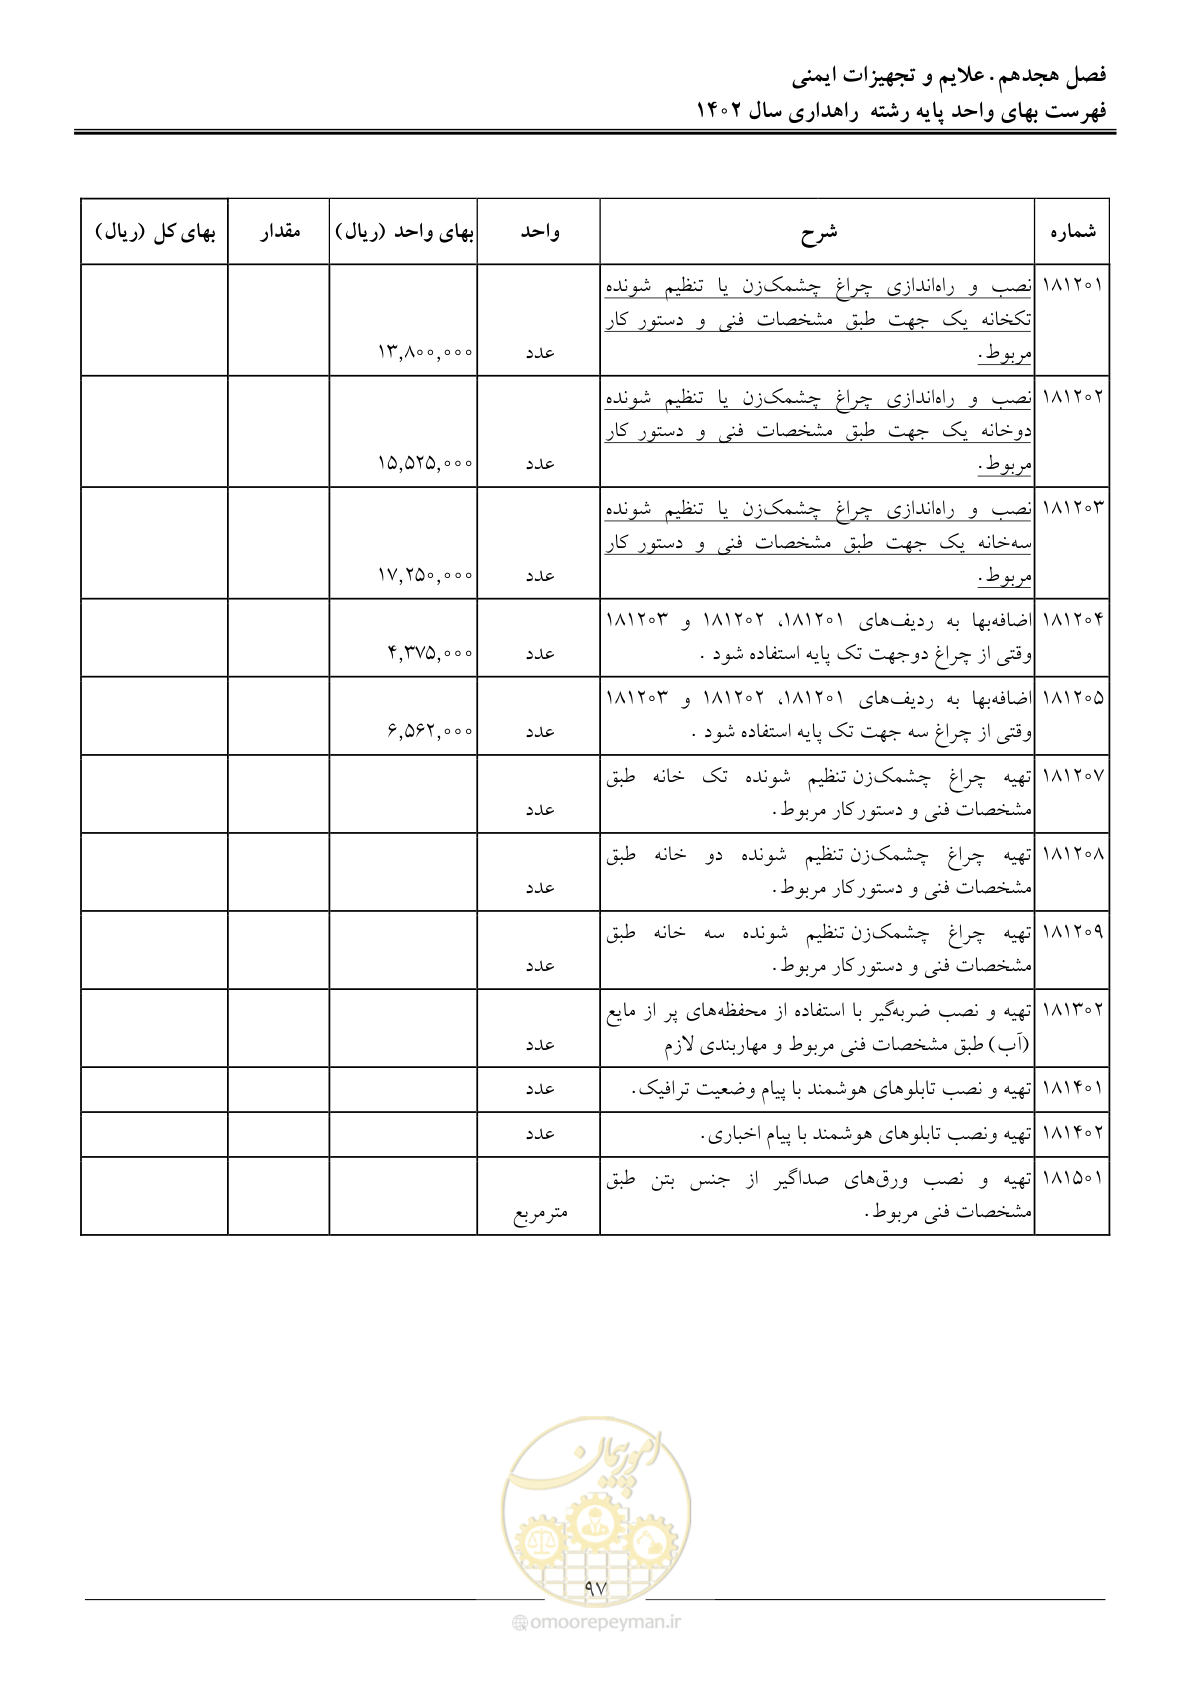 فصل هجدهم. علایم و تجهیزات ایمنی
فهرست بهای واحد پایه رشته راهداری سال ۱۴۰۲
شماره شرح واحد بهای واحد (ریال) مقدار بهای کل (ریال)
۱۸۱۲۰۱ نصب و راه‌اندازی چراغ چشمک‌زن یا تنظیم شونده
تکخانه یک جهت طبق مشخصات فنی و دستور کار
مربوط. عدد ۱۳,۸۰۰,۰۰۰
۱۸۱۲۰۲ نصب و راه‌اندازی چراغ چشمک‌زن یا تنظیم شونده
دوخانه یک جهت طبق مشخصات فنی و دستور کار
مربوط. عدد ۱۵,۵۲۵,۰۰۰
۱۸۱۲۰۳ نصب و راه‌اندازی چراغ چشمک‌زن یا تنظیم شونده
سه‌خانه یک جهت طبق مشخصات فنی و دستور کار
مربوط. عدد ۱۷,۲۵۰,۰۰۰
۱۸۱۲۰۴ اضافه‌بها به ردیف‌های ۱۸۱۲۰۱، ۱۸۱۲۰۲ و ۱۸۱۲۰۳
وقتی از چراغ دوجهت تک پایه استفاده شود . عدد ۴,۳۷۵,۰۰۰
۱۸۱۲۰۵ اضافه‌بها به ردیف‌های ۱۸۱۲۰۱، ۱۸۱۲۰۲ و ۱۸۱۲۰۳
وقتی از چراغ سه جهت تک پایه استفاده شود . عدد ۶,۵۶۲,۰۰۰
۱۸۱۲۰۷ تهیه چراغ چشمک‌زن تنظیم شونده تک خانه طبق
مشخصات فنی و دستورکار مربوط. عدد
۱۸۱۲۰۸ تهیه چراغ چشمک‌زن تنظیم شونده دو خانه طبق
مشخصات فنی و دستورکار مربوط. عدد
۱۸۱۲۰۹ تهیه چراغ چشمک‌زن تنظیم شونده سه خانه طبق
مشخصات فنی و دستورکار مربوط. عدد
۱۸۱۳۰۲ تهیه و نصب ضربه‌گیر با استفاده از محفظه‌های پر از مایع
(آب) طبق مشخصات فنی مربوط و مهاربندی لازم عدد
۱۸۱۴۰۱ تهیه و نصب تابلوهای هوشمند با پیام وضعیت ترافیک. عدد
۱۸۱۴۰۲ تهیه ونصب تابلوهای هوشمند با پیام اخباری. عدد
۱۸۱۵۰۱ تهیه و نصب ورق‌های صداگیر از جنس بتن طبق
مشخصات فنی مربوط. مترمربع
امور پیمان
۹۷
omoorepeyman.ir